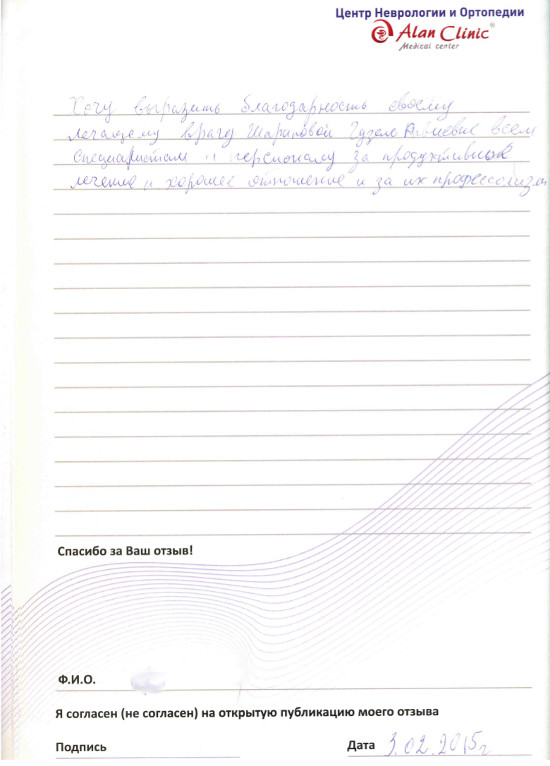 Центр Неврологии и Ортопедии
Alan Clinic®
Medical center
Хочу выразить благодарность своему
лечащему врачу Шариповой Гузели всем
специалистам и персоналу за продуктивное
лечение и хорошее отношение и за их профессолизм
Спасибо за Ваш отзыв!
Ф.И.О.
Я согласен (не согласен) на открытую публикацию моего отзыва
Подпись
Дата 3.02.2015г